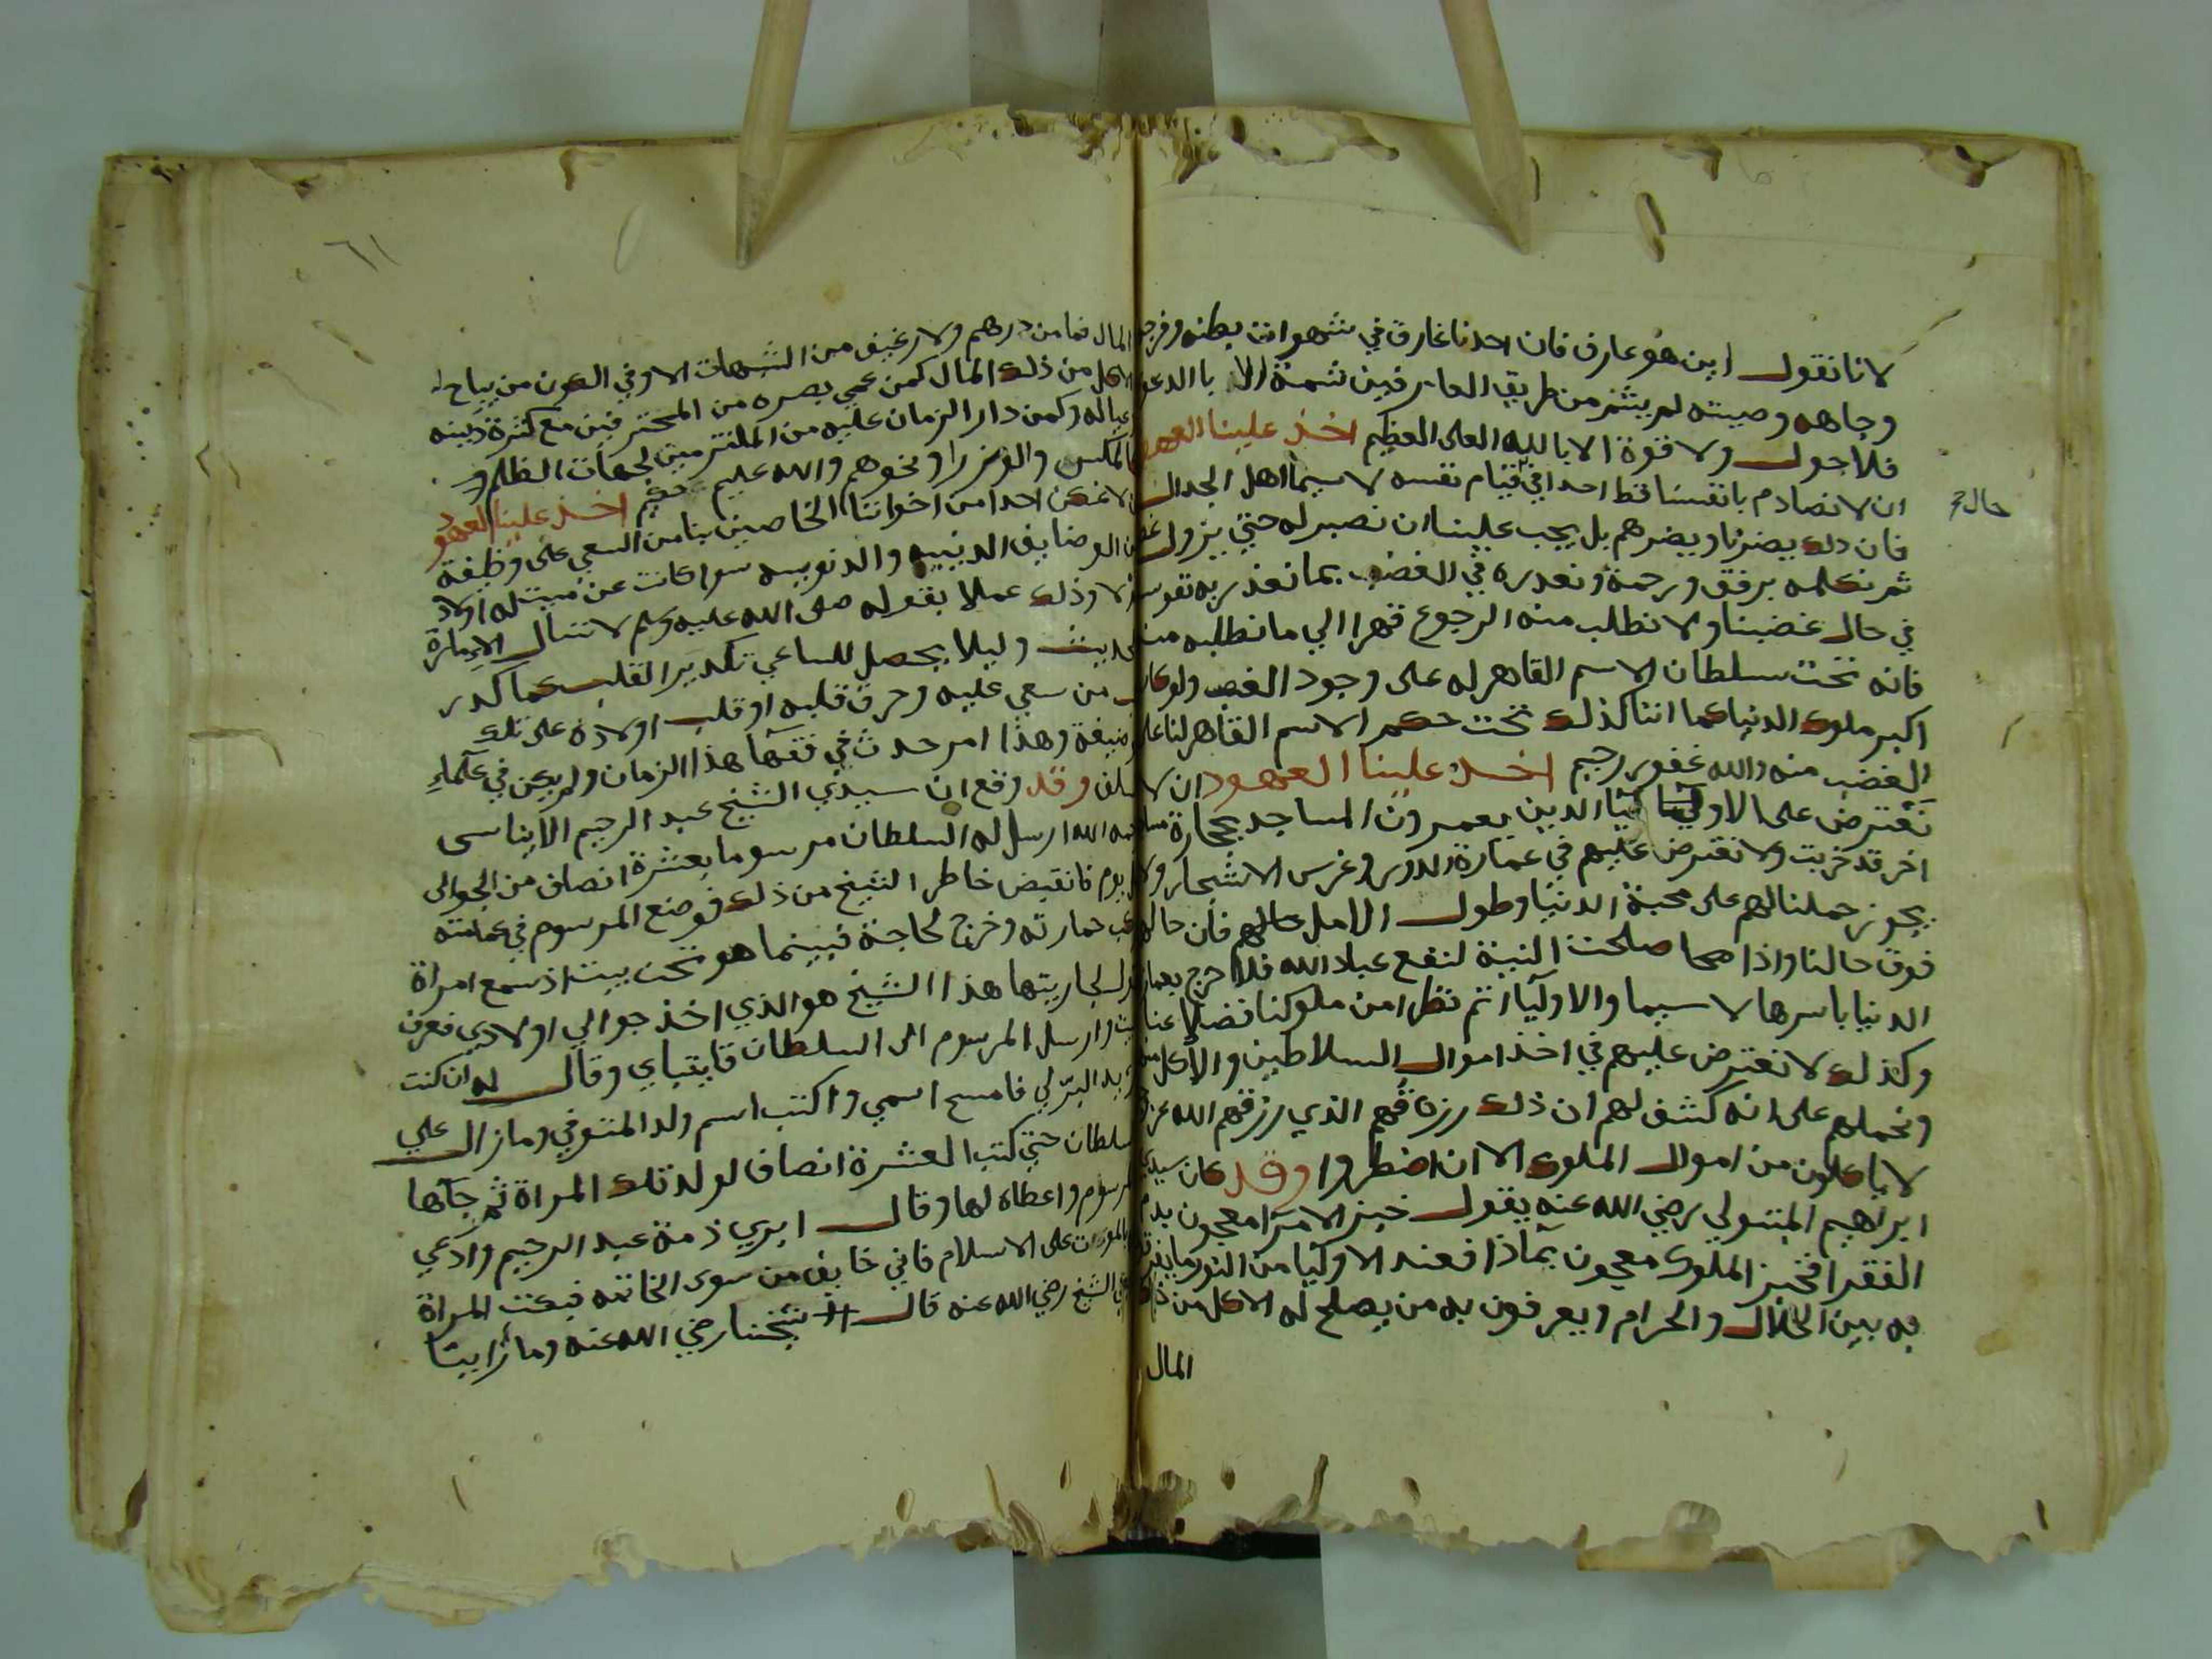 لانا نقول اين هو عارف فان احدنا غارق في شهوات بطنه وفرجه
وجاهه وصيته لم يشم من طريق العارفين شمة الا بالدعو
فلا حول ولا قوة الا بالله العلى العظيم اخذ علينا العهود
ان لا نصادم بانفسنا قط احدا في قيام نفسه لاسيما اهل الجدال
حال
فان ذلك يضرنا ويضرهم بل يجب علينا ان نصبر له حتي يزول
ثم نكلمه برفق ورحمة ونعذره في الغضب بما نعذر به نفوسنا
في حال غضبنا ولا نطلب منه الرجوع قهرا الي ما نطلبه منه
فانه تحت سلطان الاسم القاهر له على وجود الغضب ولو كان
اكبر ملوك الدنيا كما اننا كذلك تحت حكم الاسم القاهر لنا على
الغضب منه والله غفور رحيم اخذ علينا العهود ان لا
نعترض على الاوليا الذين يعمرون المساجد بحجارة
اخر قد خربت ولا نعترض عليهم في عمارة الدور وغرس الاشجار ولا
يجوز حملنا لهم على محبة الدنيا وطول الامل فان حالهم
فوق حالنا واذا صلحت النية لنفع عباد الله فلا حرج بعمارة
الدنيا باسرها لاسيما والاوليا اتم نظرا من ملوكنا فضلا عنا
وكذلك لا نعترض عليهم في اخذ اموال السلاطين والاكل منها
ونحملهم على انه كشف لهم ان ذلك رزقهم الذي رزقهم الله عز
لا ياكلون من اموال الملوك الا ان اضطروا وقد كان سيدي
ابراهيم المتبولي رضي الله عنه يقول خبز الامرا معجون بدم
الفقرا فخبز الملوك معجون بماذا فعند الاوليا من النور ما يفرقون
به بين الحلال والحرام ويعرفون به من يصلح له الاكل من ذلك
المال
٦١
المال فما من درهم ولا رغيف من الشبهات الا وفي الكون من يباح له
الاكل من ذلك المال كمن عمي بصره من المحترفين مع كثرة دينه
وعياله وكمن دار الزمان عليه من الملتزمين لجهات الظلم
كالمكس والوزرا ونحوهم والله عليم حكيم اخذ علينا العهود
ان لا نمكن احدا من اخواننا الخاصين بنا من السعي على وظيفة
من الوضايف الدينيه والدنويه سوا كانت عن ميت له اولاد
ام لا وذلك عملا بقوله صلى الله عليه وسلم لا تسال الامارة
الحديث وليلا يحصل للساعي تكدير القلب كما كدر
من سعي عليه وحرق قلبه او قلب اولاده على تلك
الوضيفة وهذا امر حدث في فقها هذا الزمان ولم يكن في علماء
السلف وقد وقع ان سيدي الشيخ عبد الرحيم الابناسى
رحمه الله ارسل له السلطان مرسوما بعشرة انصاف من الجوالى
كل يوم فانقبض خاطر الشيخ من ذلك فوضع المرسوم في عمامته
وركب حمارته وخرج لحاجة فبينما هو تحت بيت اذ سمع امراة
تقول لجاريتها هذا الشيخ هو الذي اخذ جوالي اولادي فعرف
البيت وارسل المرسوم الى السلطان قايتباي وقال له ان كنت
تريد البر لي فامسح اسمي واكتب اسم ولد المتوفي وما زال علي
السلطان حتي كتب العشرة انصاف لولد تلك المراة ثم جاها
بالمرسوم واعطاه لها وقال ابري ذمة عبد الرحيم وادعي
بالموت على الاسلام فاني خايف من سوء الخاتمه فبكت المراة
علي الشيخ رضي الله عنه قال شيخنا رضي الله عنه وما راينا